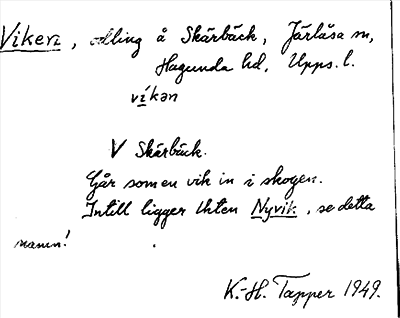 Viken, odling å Skärbäck, Järlåsa sn,
Hagunda hd, Upps. l.
víkən
V Skärbäck.
Går som en vik in i skogen.
Intill ligger lhten Nyvik, se detta
namn!
K.-H. Tapper 1949.